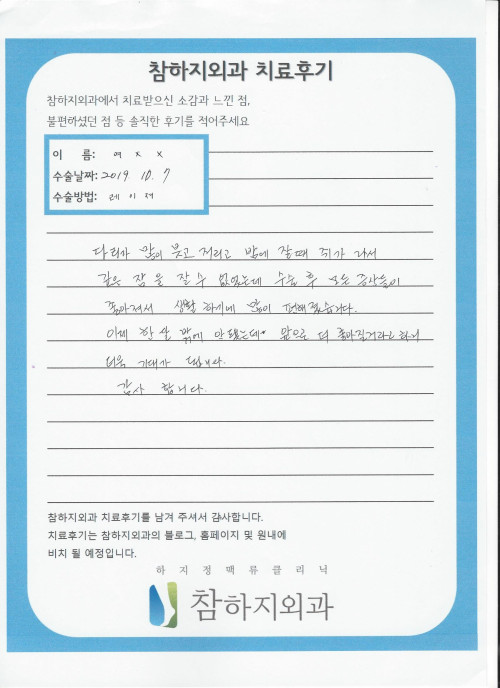 참하지외과 치료후기
참하지외과에서 치료받으신 소감과 느낀 점,
불편하셨던 점 등 솔직한 후기를 적어주세요
이 름: 여 X X
수술날짜: 2019 10. 7
수술방법: 레이저
다리가 많이 붓고 저리고 밤에 잘때 쥐가 나서
깊은 잠을 잘 수 없었는데 수술 후 모든 증상들이
좋아져서 생활 하기에 많이 편해졌습니다.
이제 한달 밖에 안됐는데 앞으로 더 좋아질거라고 하니
더욱 기대가 됩니다.
감사 합니다.
참하지외과 치료후기를 남겨 주셔서 감사합니다.
치료후기는 참하지외과의 블로그, 홈페이지 및 원내에
비치 될 예정입니다.
하지정맥류클리닉
참하지외과